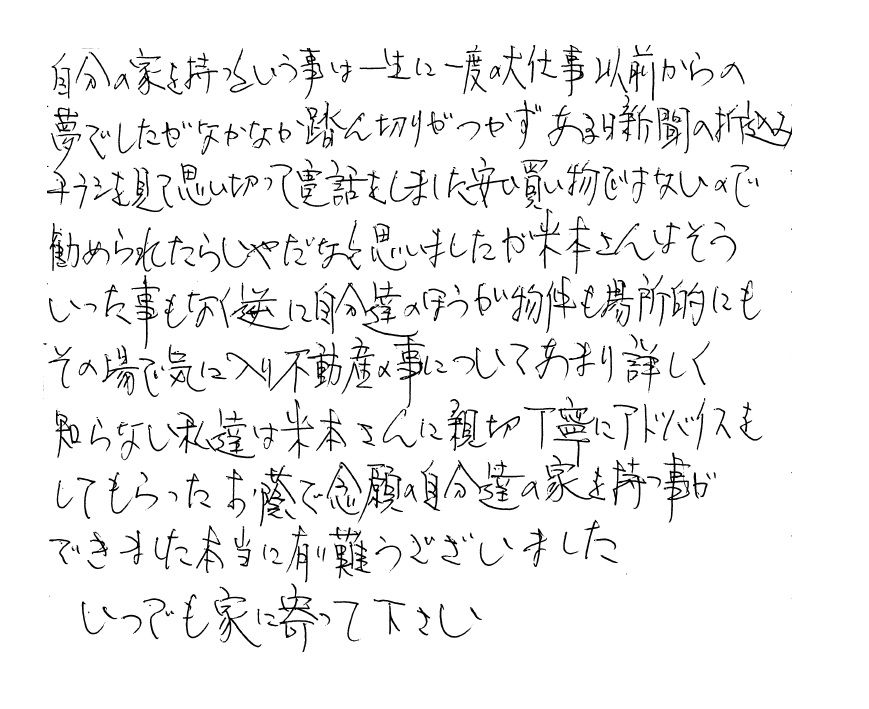 自分の家を持つという事は一生に一度の大仕事以前からの
夢でしたがなかなか踏ん切りがつかずある日新聞の折込み
チラシを見て思い切って電話をしました安い買い物ではないので
勧められたらいやだなと思いましたが米本さんはそう
いった事もなく逆に自分達のほうが物件も場所的にも
その場で気に入り不動産の事についてあまり詳しく
知らない私達は米本さんに親切丁寧にアドバイスを
してもらったお蔭で念願の自分達の家を持つ事が
できました本当に有り難うございました
いつでも家に寄って下さい